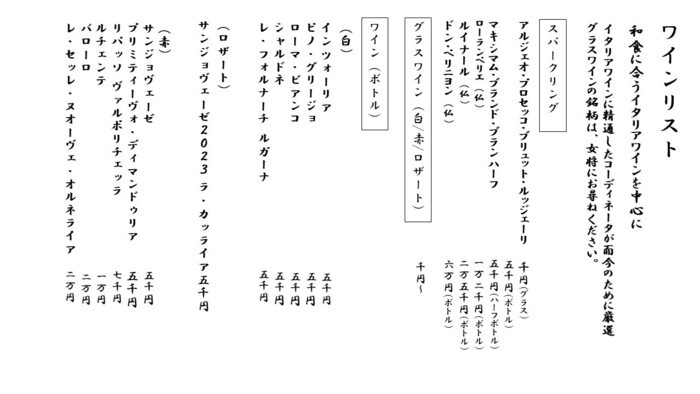 ワインリスト
和食に合うイタリアワインを中心に
イタリアワインに精通したコーディネータが而今のために厳選
グラスワインの銘柄は、女将にお尋ねください。
スパークリング
アルジェオ・プロセッコ・ブリュット・ルッジェーリ 千円(グラス)
五千円(ボトル)
マキシマム・ブランド・ブランハーフ 五千円(ハーフボトル)
ローランペリエ(仏) 一万二千円(ボトル)
ルイナール(仏) 二万五千円(ボトル)
ドン・ペリニヨン(仏) 六万円(ボトル)
グラスワイン(白/赤/ロザート) 千円~
ワイン(ボトル)
(白)
インツォーリア 五千円
ピノ・グリージョ 五千円
ローマ・ビアンコ 五千円
シャルドネ 五千円
レ・フォルナーチ ルガーナ 五千円
(ロザート)
サンジョヴェーゼ2023 ラ・カッライア 五千円
(赤)
サンジョヴェーゼ 五千円
プリミティーヴォ・ディマンドゥリア 五千円
リパッソ ヴァルポリチェッラ 七千円
ルチェンテ 一万円
バローロ 二万円
レ・セッレ・ヌオーヴェ・オルネライア 二万円